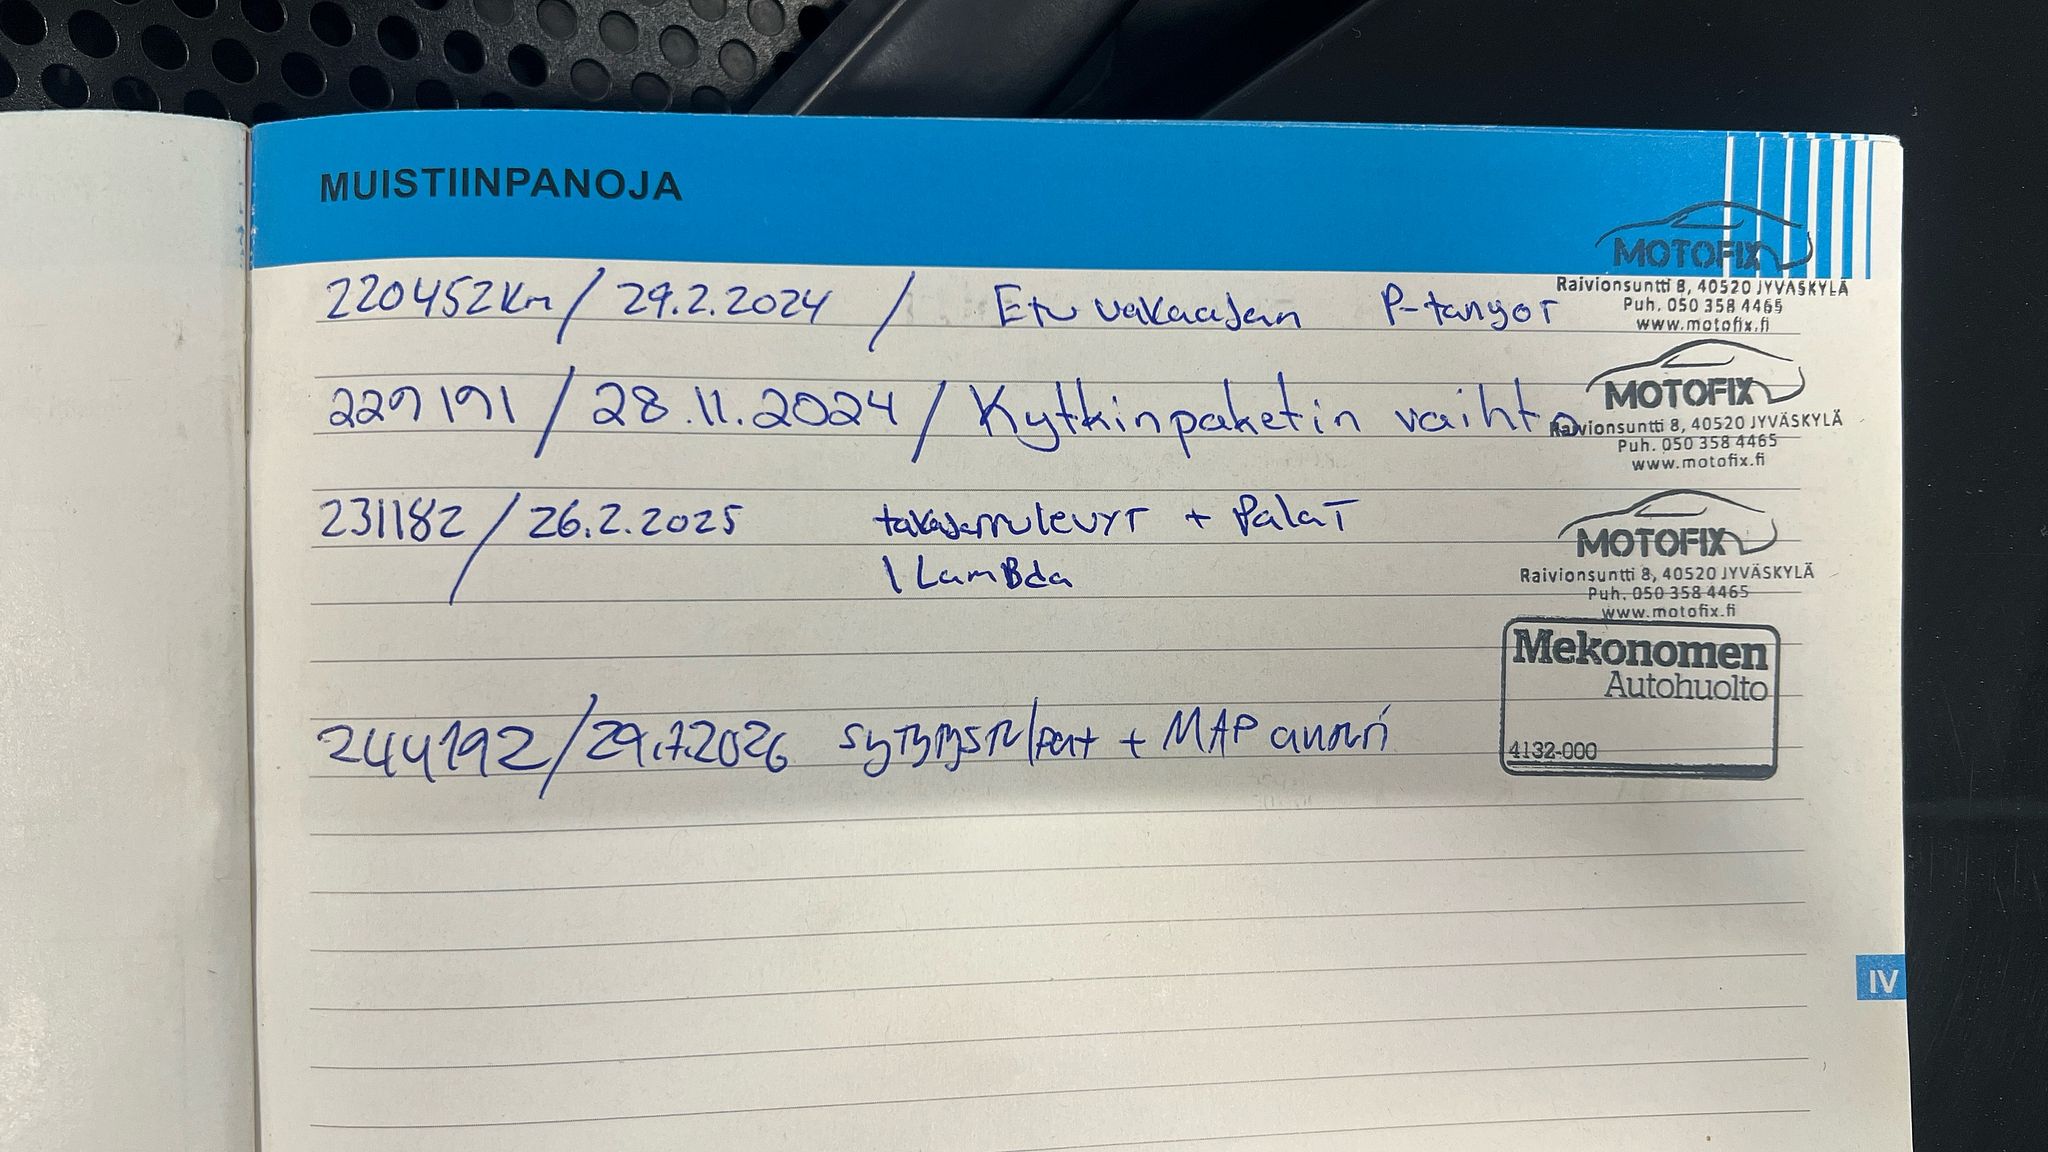 MUISTIINPANOJA
MOTOFIX
Raivionsuntti 8, 40520 JYVÄSKYLÄ
Puh. 050 358 4465
www.motofix.fi
220452km / 29.2.2024 / Etu vakaajan P-tangot
MOTOFIX
Raivionsuntti 8, 40520 JYVÄSKYLÄ
Puh. 050 358 4465
www.motofix.fi
229191 / 28.11.2024 / Kytkinpaketin vaihto
MOTOFIX
Raivionsuntti 8, 40520 JYVÄSKYLÄ
Puh. 050 358 4465
www.motofix.fi
231182 / 26.2.2025 takajarrulevyt + Palat
1 LamBda
Mekonomen
Autohuolto
4132-000
244192 / 29.7.2026 + MAP anturi
IV